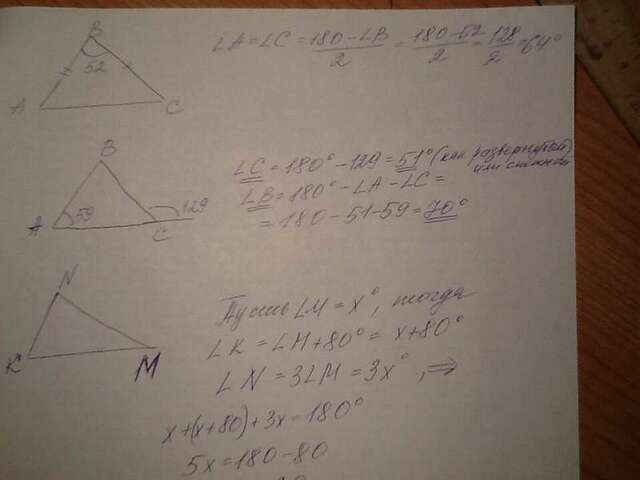 B
52
A
C
∠A = ∠C = (180 - ∠B)/2 = (180 - 52)/2 = 128/2 = 64°
B
A
59
C
129
∠C = 180° - 129 = 51° (как развернутый)
или смежной
∠B = 180° - ∠A - ∠C =
= 180 - 51 - 59 = 70°
N
K
M
Пусть ∠M = x°, тогда
∠K = ∠M + 80° = x + 80°
∠N = 3∠M = 3x°, ⇒
x + (x + 80) + 3x = 180°
5x = 180 - 80